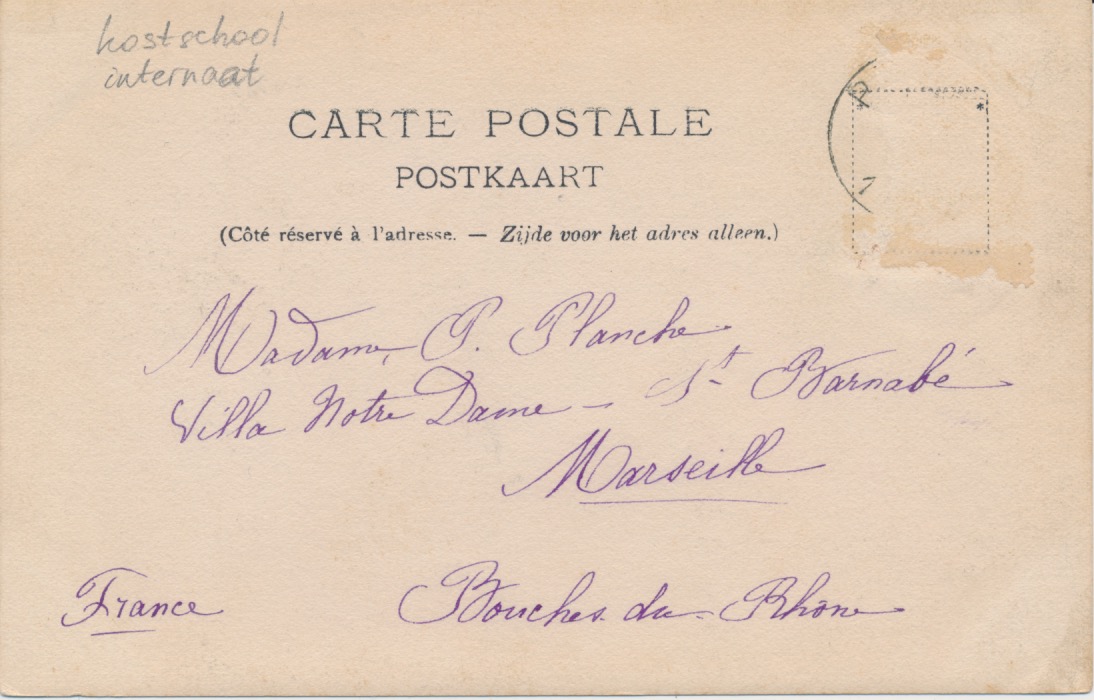 kostschool
internaat
CARTE POSTALE
POSTKAART
(Côté réservé à l'adresse. — Zijde voor het adres alleen.)
Madame P. Planche
Villa Notre Dame – St Barnabé
Marseille
France
Bouches du Rhône